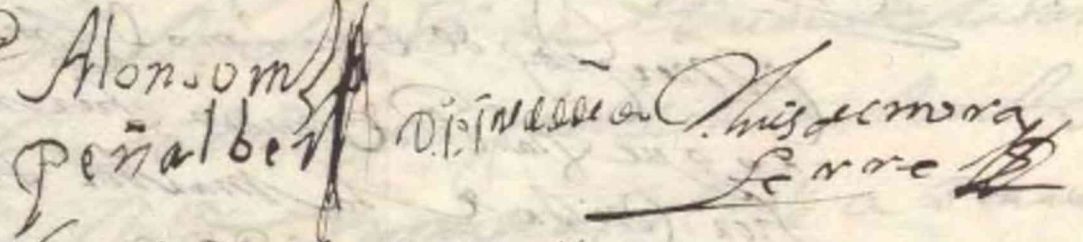 Alonso mrz
peñalber
Luis de mora
ferre